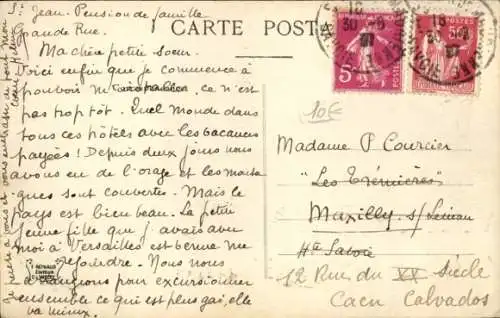 St Jean. Pension de famille
Grande Rue.
CARTE POSTALE
Ma chère petite soeur
Voici enfin que je commence à
pouvoir m'organiser, ce n'est
pas trop tôt. Quel monde dans
tous ces hôtels avec les vacances
payées! Depuis deux jours nous
avons eu de l'orage et les monta
gnes sont couvertes. Mais le
pays est bien beau. La petite
jeune fille que j'avais avec
moi à Versailles est venue me
rejoindre. Nous nous
arrangeons pour excursionner
ensemble ce qui est plus gai, elle
va mieux.
Je pense à vous et vous embrasse
10€
Madame P Courcier
"Les Trémières"
Maxilly s/ Léman
Hte Savoie
12 Rue du XX Siècle
Caen Calvados
5c
POSTES
50c